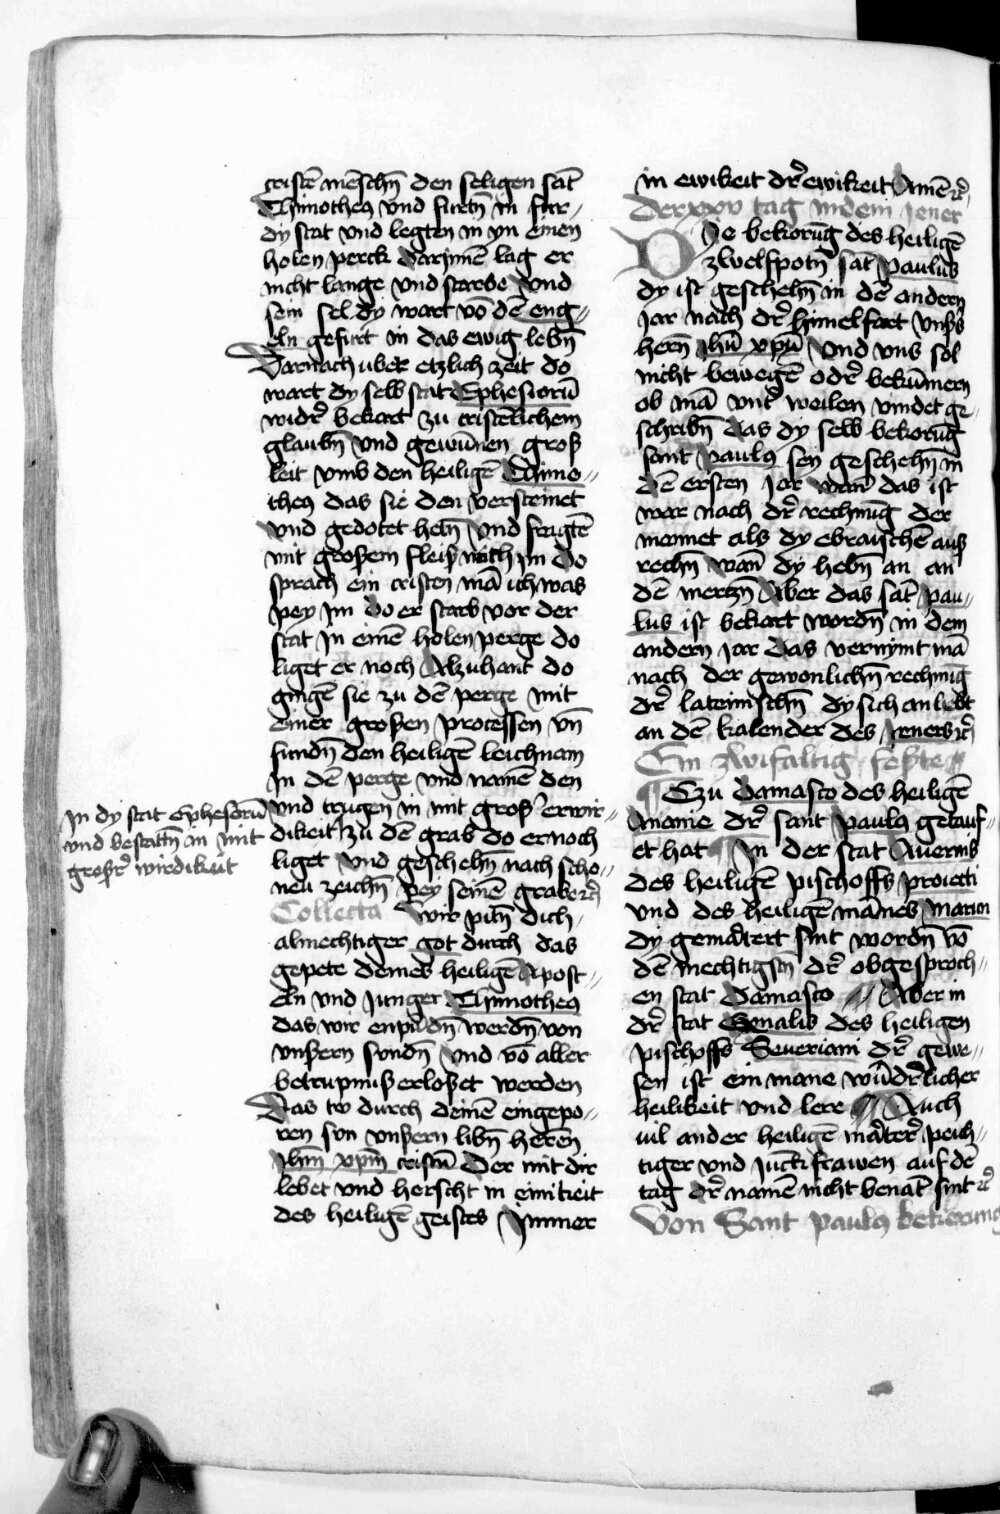 cristē mēschn̄ den seligen sāt
Thimotheꝯ vnd furtn̄ in fur〃
dy stat vnd legten in yn einen
holen perck darjnnē lag er
nicht lange vnd starbe vnd
sein sel dy wart vō dē eng〃
eln gefurt in das ewig lebn̄
Darnach uber etzlich zeit do
wart dy selb stat Ephesiorū
widr̄ bekart zu cristēlichem
glaubn̄ vnd gewūnen groß
leit vmb den heiligē Thimo〃
theꝯ das sie den versteinet
vnd gedotet hetn̄ vnd fragtē
mit großem fleiß nach jm do
sprach ein cristen mā ich was
pey jm do er starb vor der
stat jn einē holen perge do
liget er noch Alzuhant do
gingē sie zu dē perge mit
einer großen processen vn̄
fundn̄ den heiligē leichnam
jn dē perge vnd namē den
vnd trugen in mit groß erwir〃
dikeit zu dē grab do er noch
liget vnd geschehn̄ nach scho〃
nen zeichn̄ pey seinē grabe ꝛc̄
Collecta Wir pitn̄ dich
almechtiger got durch das
gepete deines heiligē Apost〃
eln vnd junger Thimotheꝯ
das wir enpūdn̄ werdn̄ von
vnßern sundn̄ vnd vō aller
betrupniß erloßet werden
Das tw durch deinē eingepo〃
ren sun vnßern libn̄ herēn
jhm̄ xpm̄ cristū Der mit dir
lebet vnd herscht in einikeit
des heiligē geistes jmmer
jn dy stat Ephesiorū
vnd bestattn̄ in mit
großr̄ wirdikeit
in ewikeit dr̄ ewikeit Amē ꝛc̄
Der xxv tag in dem jener
Die bekorūg des heiligē
zwelfpotn̄ sāt Paulus
dy ist geschehn̄ in dē andern
jar nach dr̄ himelfart vnßs
herēn jhū xpū Vnd vns sol
nicht bewegē odr̄ bekūmern
ob mā vntr̄ weilen vindet ge〃
schribn̄ das dy selb bekorūg
sant Pauluꝯ sey geschehn̄ in
dē ersten jar wan̄ das ist
war nach dr̄ rechnūg der
monnet als dy ebraischē auß
rechn̄ wan̄ dy hebn̄ an an
dē mertzn̄ Aber das sāt Pau〃
lus ist bekart wordn̄ in dem
andern jar das vernymt mā
nach der gewonlichn̄ rechnūg
dr̄ lateinischn̄ dy sich anhebt
an dē kalender des jeners ꝛc̄
Ein zwifaltig feste
Czu Damasco des heiligē
Ananie dr̄ sant Pauluꝯ getauf〃
et hat Jn der stat Auernis
des heiligē pischoffs proiecti
vnd des heiligē mānes marion
dy gemāttert sint wordn̄ vō
dē mechtigstn̄ dr̄ obgesproch〃
en stat Damasco Aber in
dr̄ stat Genalis des heiligen
pischoffs Seueriani dr̄ gewe〃
sen ist ein mane wūdr̄licher
heilikeit vnd lere Auch
uil ander heiligē māterr̄ peich〃
tiger vnd juckfrawen auf dē
tag dr̄ namē nicht benāt sint ꝛc̄
Von Sant Pauluꝯ bekerung